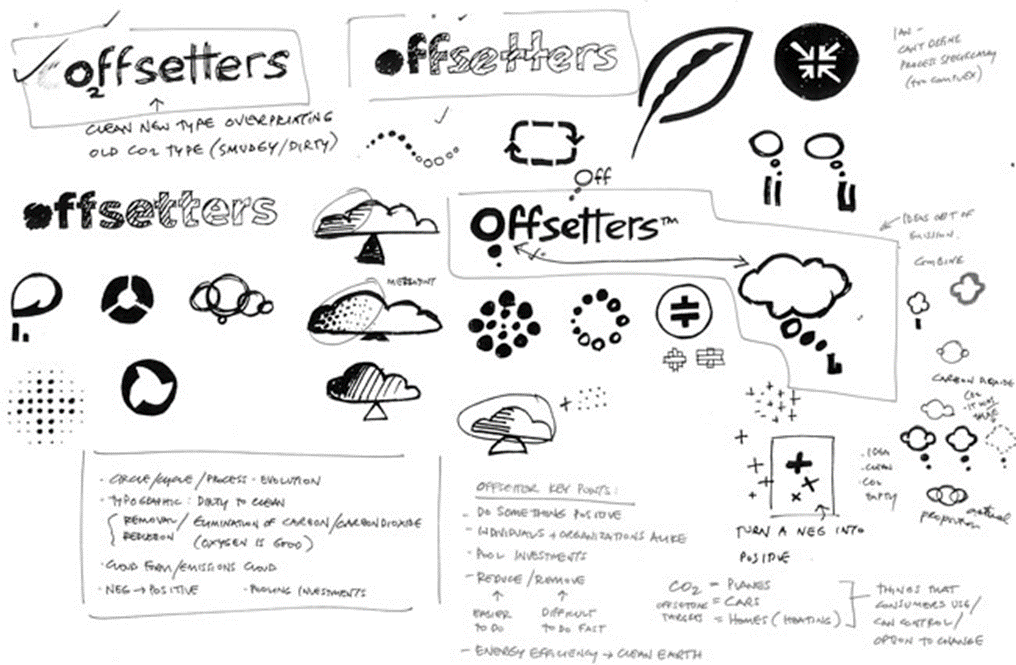 Offsetters
2
Offsetters
CLEAN NEW TYPE OVERPRINTING
OLD CO2 TYPE (SMUDGEY/DIRTY)
IAN -
CAN'T DEFINE
PROCESS SPECIFICALLY
(TOO COMPLEX)
Off
offsetters
Offsetters™
IDEAS OUT OF
EMISSION.
COMBINE
CARBON DIOXIDE
CO2
· IDEA
· CLEAN
· CO2
EMPTY
actual
proportion
· CIRCLE/CYCLE/PROCESS · EVOLUTION
· TYPOGRAPHIC: DIRTY TO CLEAN
REMOVAL/ ELIMINATION OF CARBON/CARBON DIOXIDE
(OXYGEN IS GOOD)
· CLOUD FORM/EMISSIONS CLOUD
· NEG → POSITIVE · POOLING INVESTMENTS
OFFSETTER KEY POINTS:
- DO SOMETHING POSITIVE
- INDIVIDUALS + ORGANIZATIONS ALIKE
- POOL INVESTMENTS
- REDUCE/REMOVE
EASIER TO DO
DIFFICULT TO DO FAST
- ENERGY EFFICIENCY → CLEAN EARTH
TURN A NEG INTO
POSITIVE
CO2 = PLANES
OFFSETTING = CARS
TARGETS = HOMES (HEATING)
THINGS THAT
CONSUMERS USE/
CAN CONTROL/
OPTION TO CHANGE